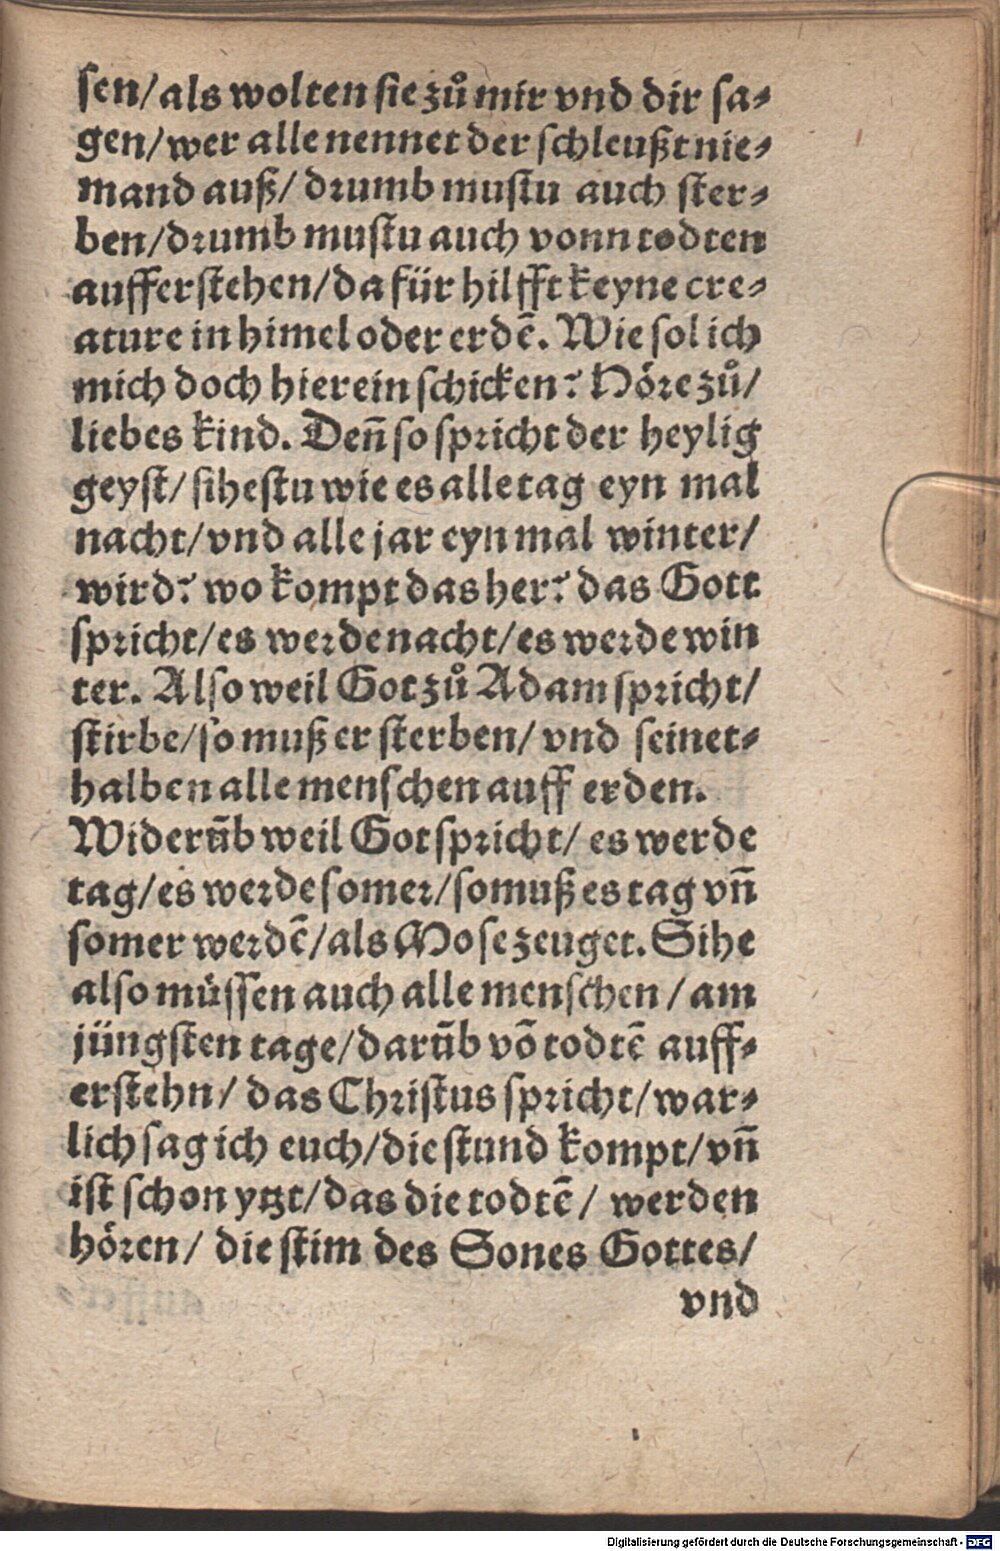 sen/als wolten sie zů mir vnd dir sa-
gen/wer alle nennet der schleußt nie-
mand auß/ drumb mustu auch ster-
ben/drumb mustu auch vonn todten
aufferstehen/da für hilfft keyne cre-
ature in himel oder erdē. Wie sol ich
mich doch hierein schicken? Höre zů/
liebes kind. Deñ so spricht der heylig
geyst/ sihestu wie es alle tag eyn mal
nacht/vnd alle jar eyn mal winter/
wird? wo kompt das her? das Gott
spricht/es werde nacht/es werde win
ter. Also weil Got zů Adam spricht/
stirbe/so muß er sterben/ vnd seinet-
halben alle menschen auff erden.
Widerūb weil Got spricht/ es werde
tag/es werde somer/so muß es tag vñ
somer werdē/als Mose zeuget. Sihe
also müssen auch alle menschen/am
jüngsten tage/darūb vō todtē auff-
erstehn/ das Christus spricht/war-
lich sag ich euch/die stund kompt/vñ
ist schon ytzt/das die todtē/ werden
hören/ die stim des Sones Gottes/
vnd
Digitalisierung gefördert durch die Deutsche Forschungsgemeinschaft - DFG